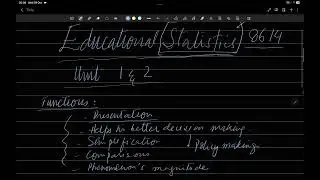 Educational (Statistics) 8614
Unit 1 & 2
Functions:
- Presentation
- Helps in better decision making
- Simplification
Policy making
- Comparisons
- Phenomenon's magnitude